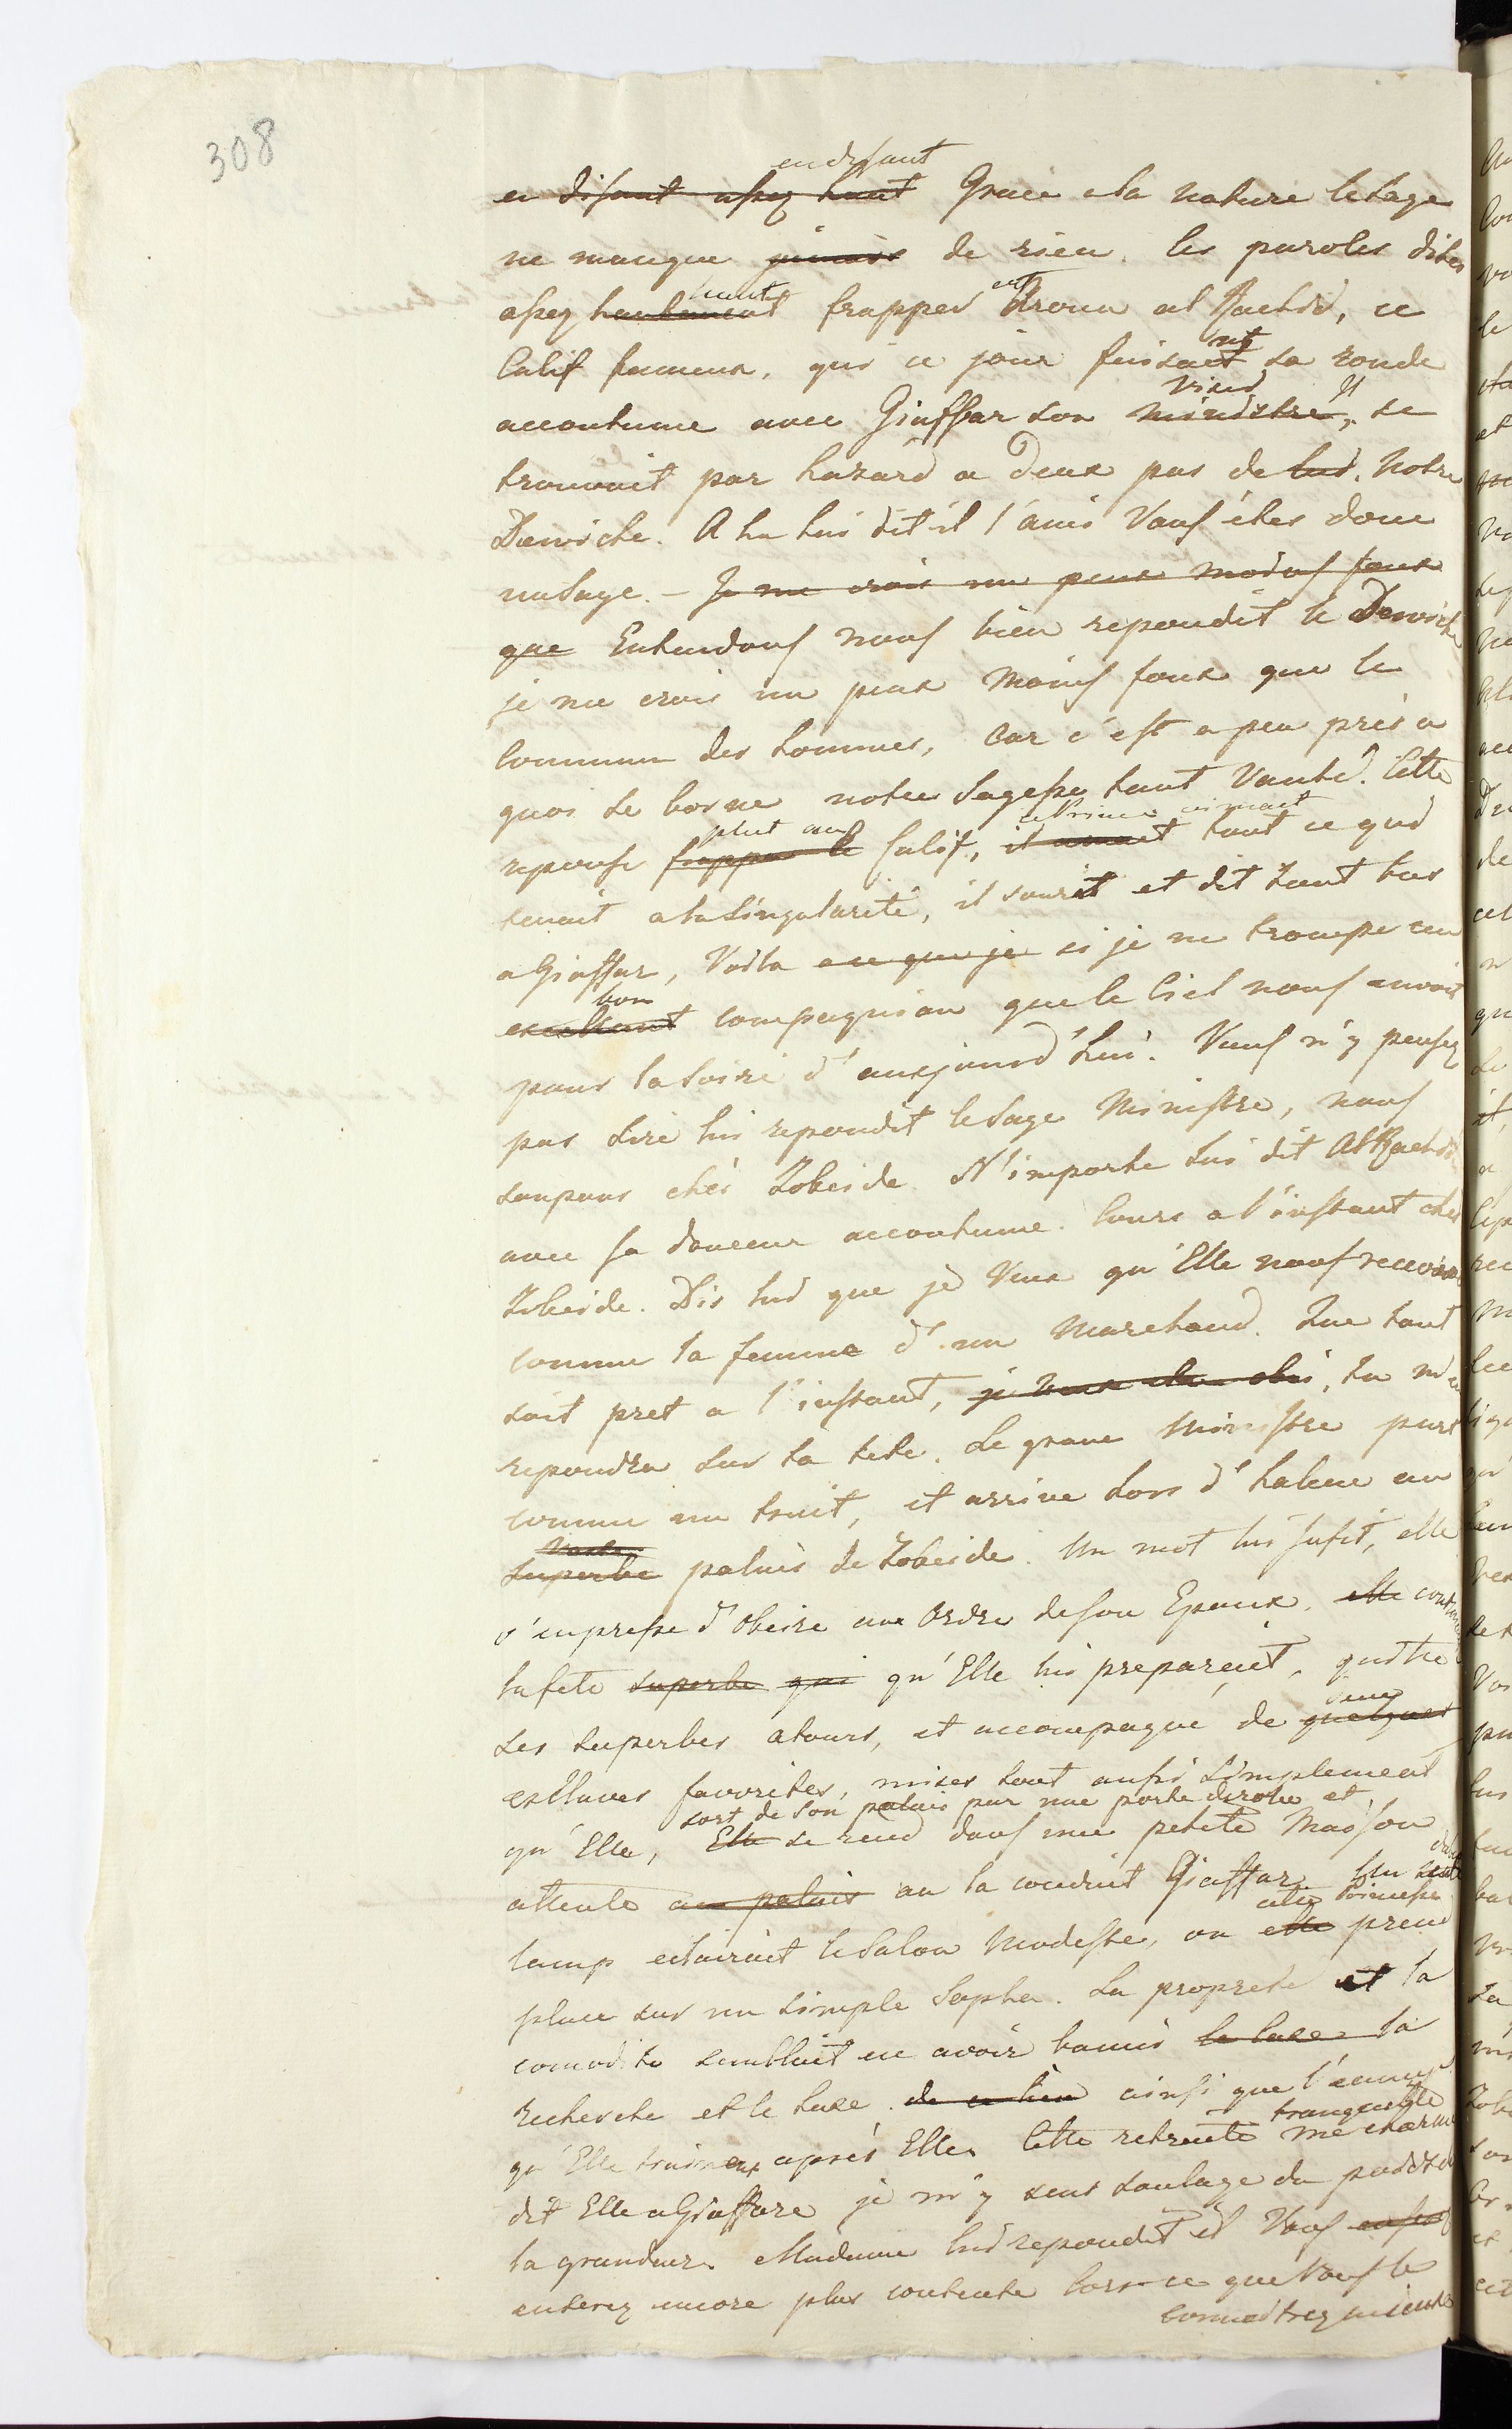 308
en disant
en disant assez haut Grace a la nature le sage
ne manque jamais de rien. les paroles dites
haut
assez hautement frapper Aroun al Rachid, ce
Calif fameux, qui ce jour faisant sa ronde
Visir Il
accoutume avec Giaffar son ministre, se
trouvait par hazard a deux pas de lui. Notre
Derviche. A ha lui dit il l'ami Vous étes donc
un sage. - Je me crois un peux moins foux
que Entendous nous bien repondit le Derviche
je me crois un peux moins foux que le
commun des hommes, Car c'est a peu près a
quoi se borne notre sagesse tant Vanté. Cette
plut au ce Prince aimait
reponse frappa le Calif, il aimait tout ce qui
tenait a la singularité, il sourit et dit tout bas
a Giaffar, Voila ce que je si je ne trompe un
bon
excellent compagnion que le Ciel nous envoit
pour la soiré d'aujourd'hui. Vous n'y pensez
pas Sire lui repondit le sage Ministre, nous
soupons chés Zobeide. N'importe lui dit Al Rachid
avec sa douceur accoutume. Cours a l'instant chez
Zobeide. Dis lui que je Veux qu'Elle nous recoive
comme la femme d'un Marchand. Que tout
soit pret a l'instant, je veux etre obei, tu m'en
repondra sur ta tete. Le grave Ministre part
comme un trait, et arrive hors d'haleine au
Vaste
superbe palais de Zobeide. Un mot lui sufit, elle
s'empresse d'obeire aux Ordre de son Epoux. elle
la fete superbe qui qu'Elle lui preparait, quitte
deux
ses superbes atours, et accompagné de quelques
esClaves favorites, mises tout aussi simplement
sort de son palais par une porte derobe et
qu'Elle, Elle se rend dans une petite Maison
attente au palais ou la conduit Giaffar. Un seule
cette Princesse
lamp eclairait le Salon Modeste, ou elle prend
place sur un simple Sopha. La propreté et la
comodite semblait en avoir banis le luxe la
recherche et le luxe de ce lieu ainsi que l'ennuy
tranquille
qu'Elle traine après Elle. Cette retraite me charme
dit Elle a Giaffare je m'y sens soulage du poid de
la grandeur. Madame lui repondit il Vous
enserez encore plus contente lors-ce que Vous le
connoitrez mieux